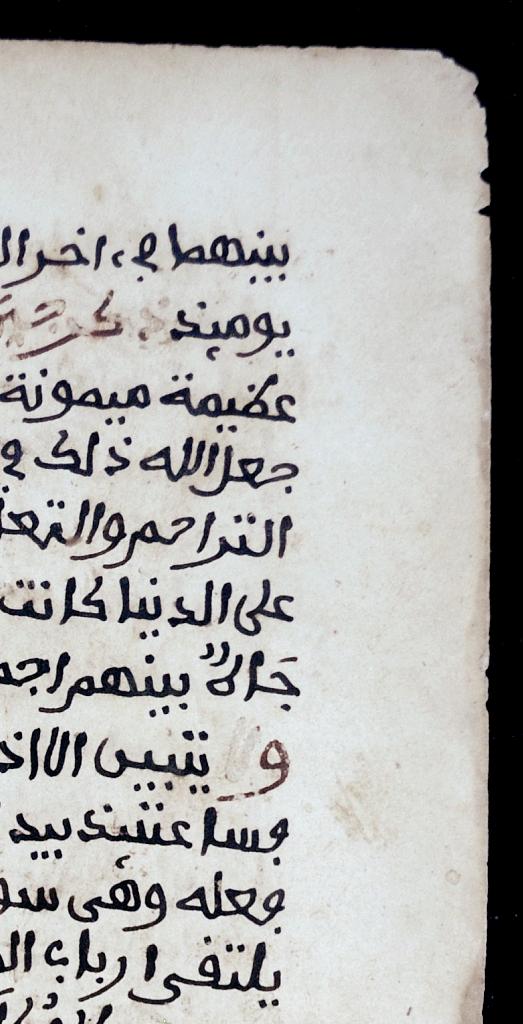 بينهما في اخر ال
يوميذ
عظيمة ميمونة
جعل الله ذلك و
التراحم والتعا
على الدنيا كانت
جالا بينهم اجم
و تتبين الا اذ
فساعتئذ بيد
فعله وهى سو
يلتفى ارباب ال